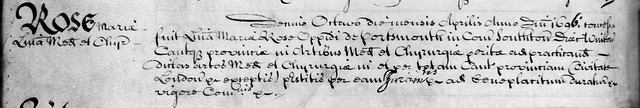 ROSE Maria
Lĩra Med et Chyr
Decimo Octavo die mensis Aprilis Anno Dñi 1696 concess
fuit Lĩra Mariæ Rose Oppidi de Portsmouth in Com Southton
Cantque provinciæ in Artibus Med et Chyrurgiæ peritæ ad practicand
artes Med et Chyrurgiæ in et per totam Cant provinciam Civitate
London exceptis prestitis per eam Juramtis ad beneplacitum duratur
vigore